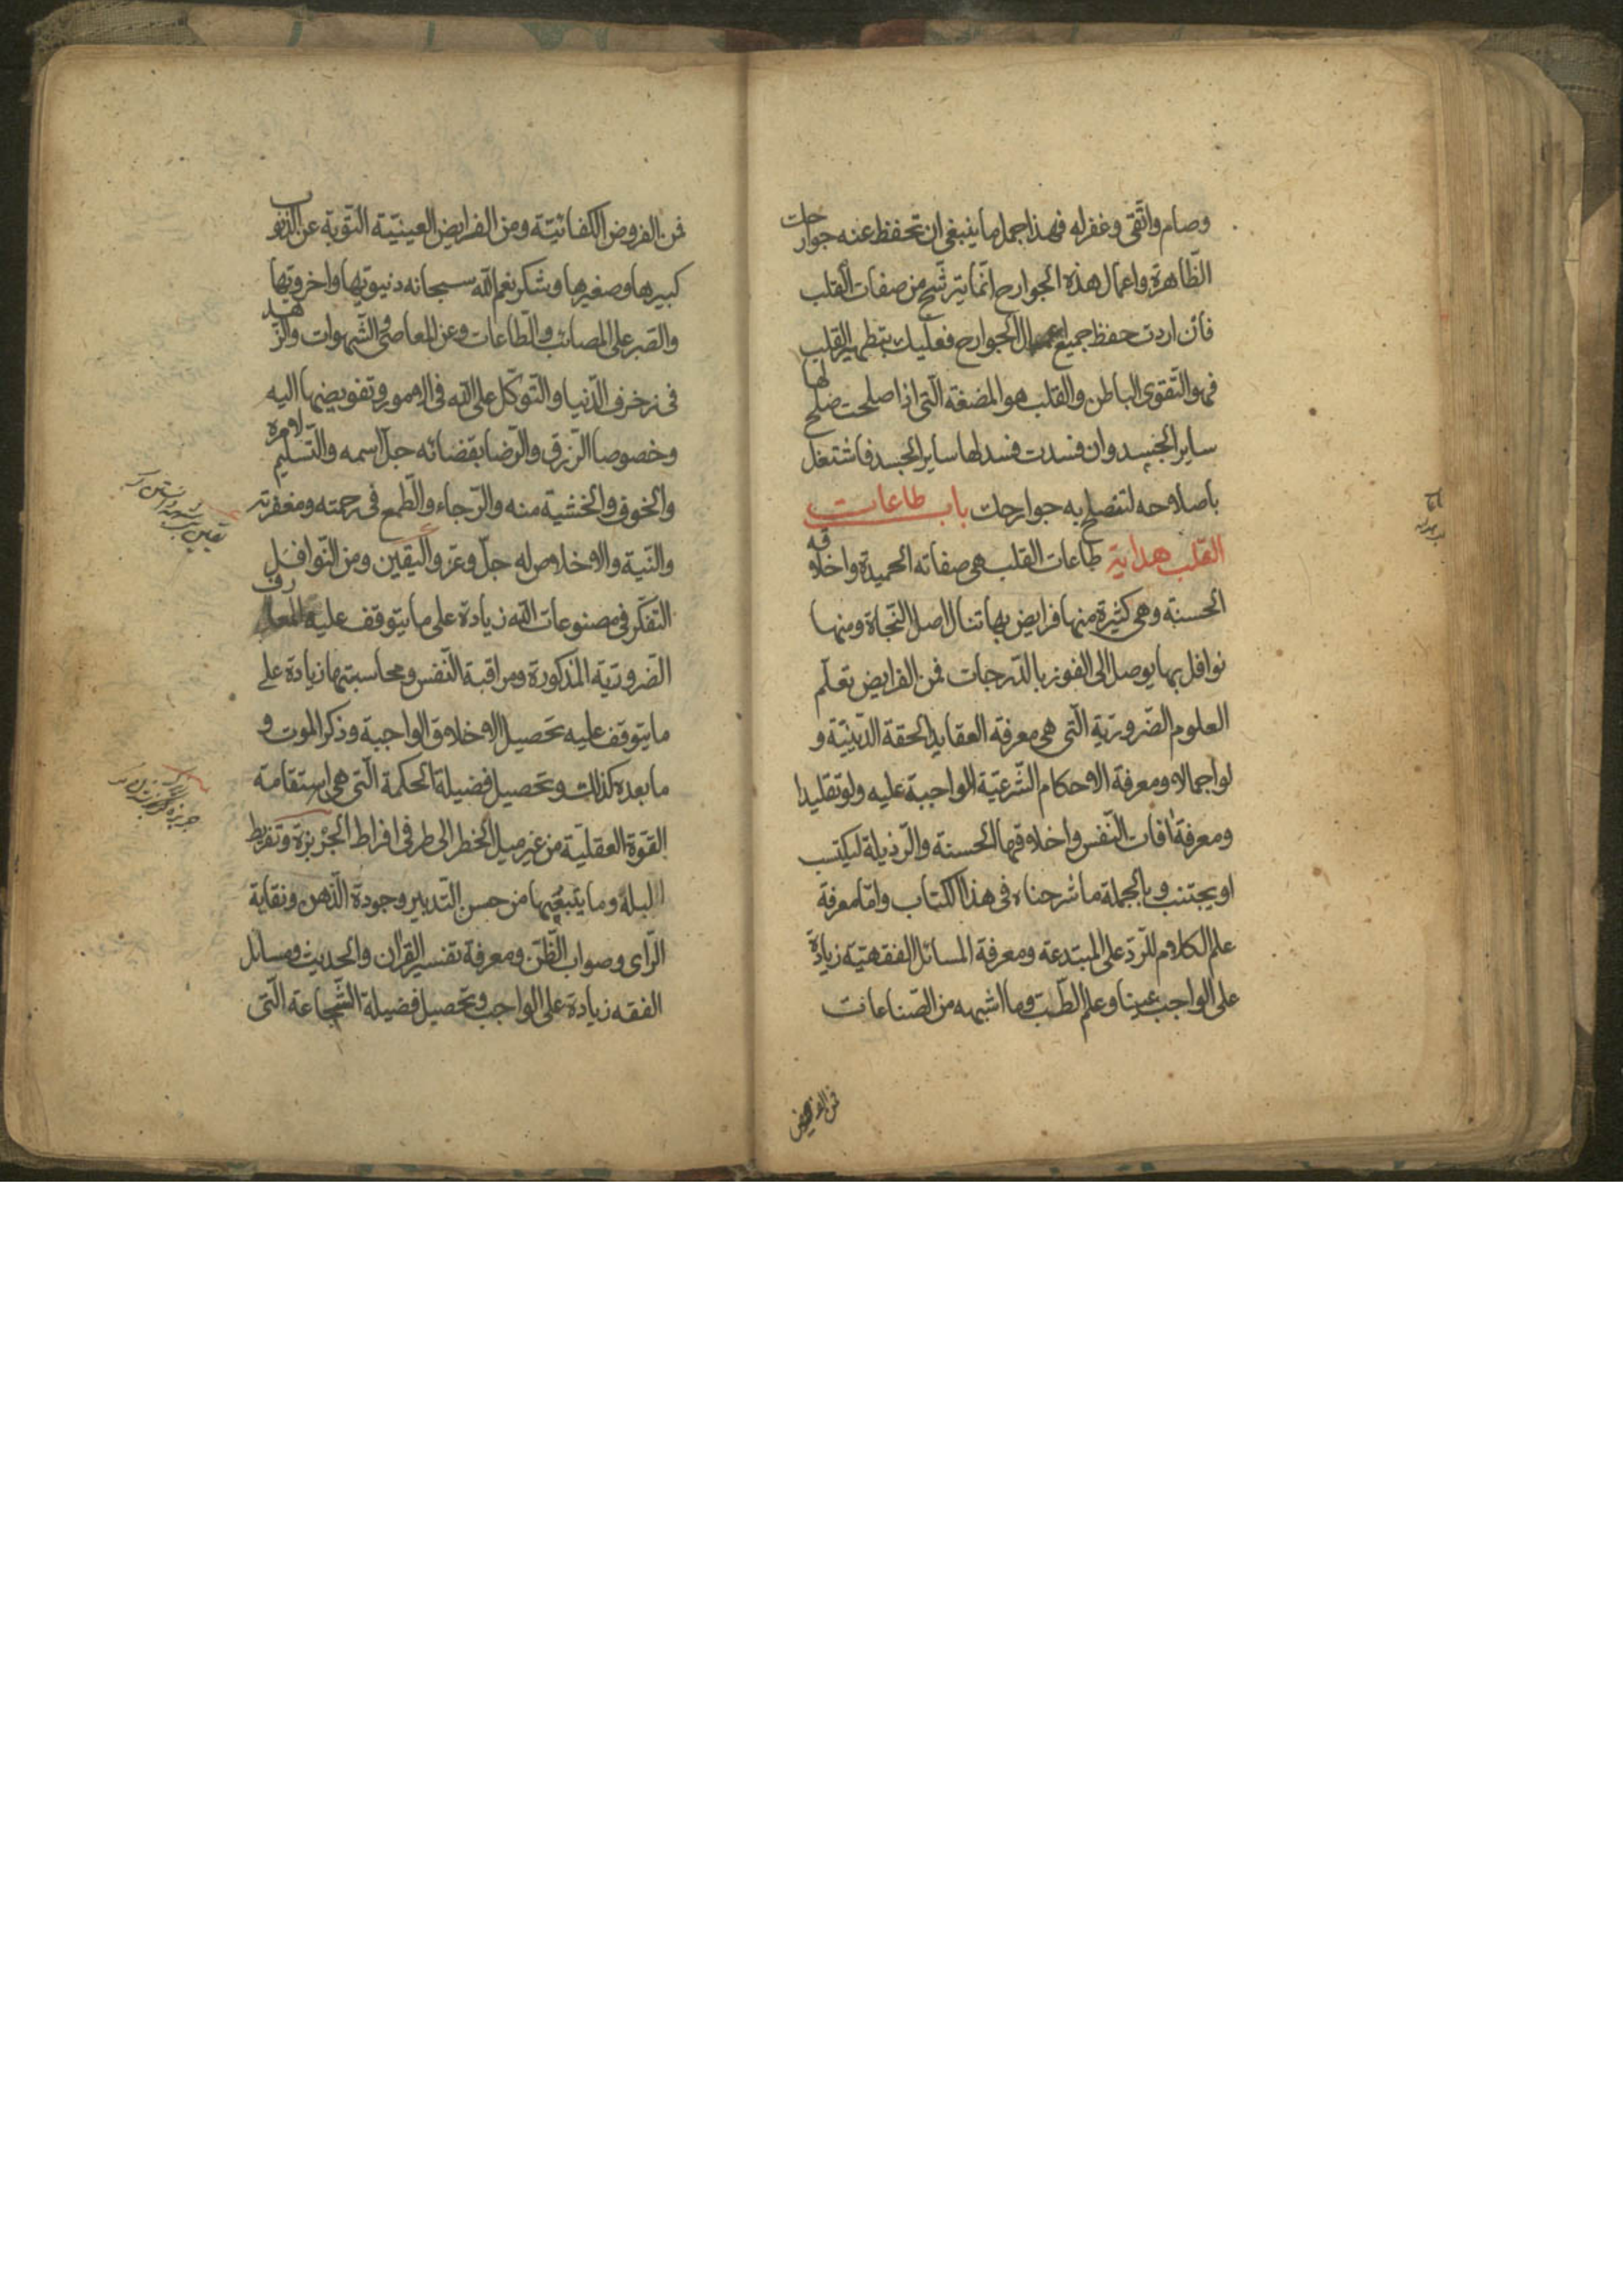 وصام واتّقى وغفر له فهذا جمل ما ينبغى ان تحفظ عنه جوارحك
الظّاهرة واعمال هذه الجوارح انّما يترشّح من صفات القلب
فان اردت حفظ جميع اعمال الجوارح فعليك بتطهير القلب
فهو التّقوى الباطن والقلب هو المضغة الّتى اذا صلحت صلح لها
ساير الجسد وان فسدت فسد لها ساير الجسد فاشتغل
باصلاحه لتصلح به جوارحك باب طاعات
القلب هداية طاعات القلب هى صفاته الحميدة واخلاقه
الحسنة وهى كثيرة منها فرايض بها تنال اصل النّجاة ومنها
نوافل بها يوصل الى الفوز بالدّرجات فمن الفرايض تعلّم
العلوم الضّروريّة الّتى هى معرفة العقايد الحقة الدّينيّة و
لو اجمالا ومعرفة الاحكام الشّرعيّة الواجبة عليه ولو تقليدا
ومعرفة افات النّفس واخلاقها الحسنة والرّذيلة ليكتسب
او يجتنب وبالجملة ما شرحناه فى هذا الكتاب وامّا معرفة
علم الكلام للرّدّ على المبتدعة ومعرفة المسائل الفقهيّة زيادة
على الواجب عينا وعلم الطّب وما اشبهه من الصّناعات
فمن الفروض
فمن الفروض الكفائيّة ومن الفرايض العينيّة التّوبة عن الذّنوب
كبيرها وصغيرها وشكر نعم اللّه سبحانه دنيويّها واخرويّها
والصّبر على المصائب والطّاعات وعن المعاصى والشّهوات والزّهد
فى زخرف الدّنيا والتّوكّل على اللّه فى الامور وتفويضها اليه
وخصوصا الرّزق والرّضا بقضائه جلّ اسمه والتّسليم لامره
والخوف والخشية منه والرّجاء والطّمع فى رحمته ومغفرته
والنّية والاخلاص له جلّ وعزّ واليقين ومن النّوافل
التّفكّر فى مصنوعات اللّه زيادة على ما يتوقف عليه المعارف
الضّروريّة المذكورة ومراقبة النّفس ومحاسبتها زيادة على
ما يتوقف عليه تحصيل الاخلاق الواجبة وذكر الموت و
ما بعده كذلك وتحصيل فضيلة الحكمة الّتى هى استقامة
القوّة العقليّة من غير ميل الخطر الى طرفى افراط الجربزة وتفريط
البله وما يتبعها من حسن التّدبير وجودة الذّهن ونقاية
الرّاى وصواب الظّنّ ومعرفة تفسير القران والحديث ومسائل
الفقه زيادة على الواجب وتحصيل فضيلة الشّجاعة الّتى